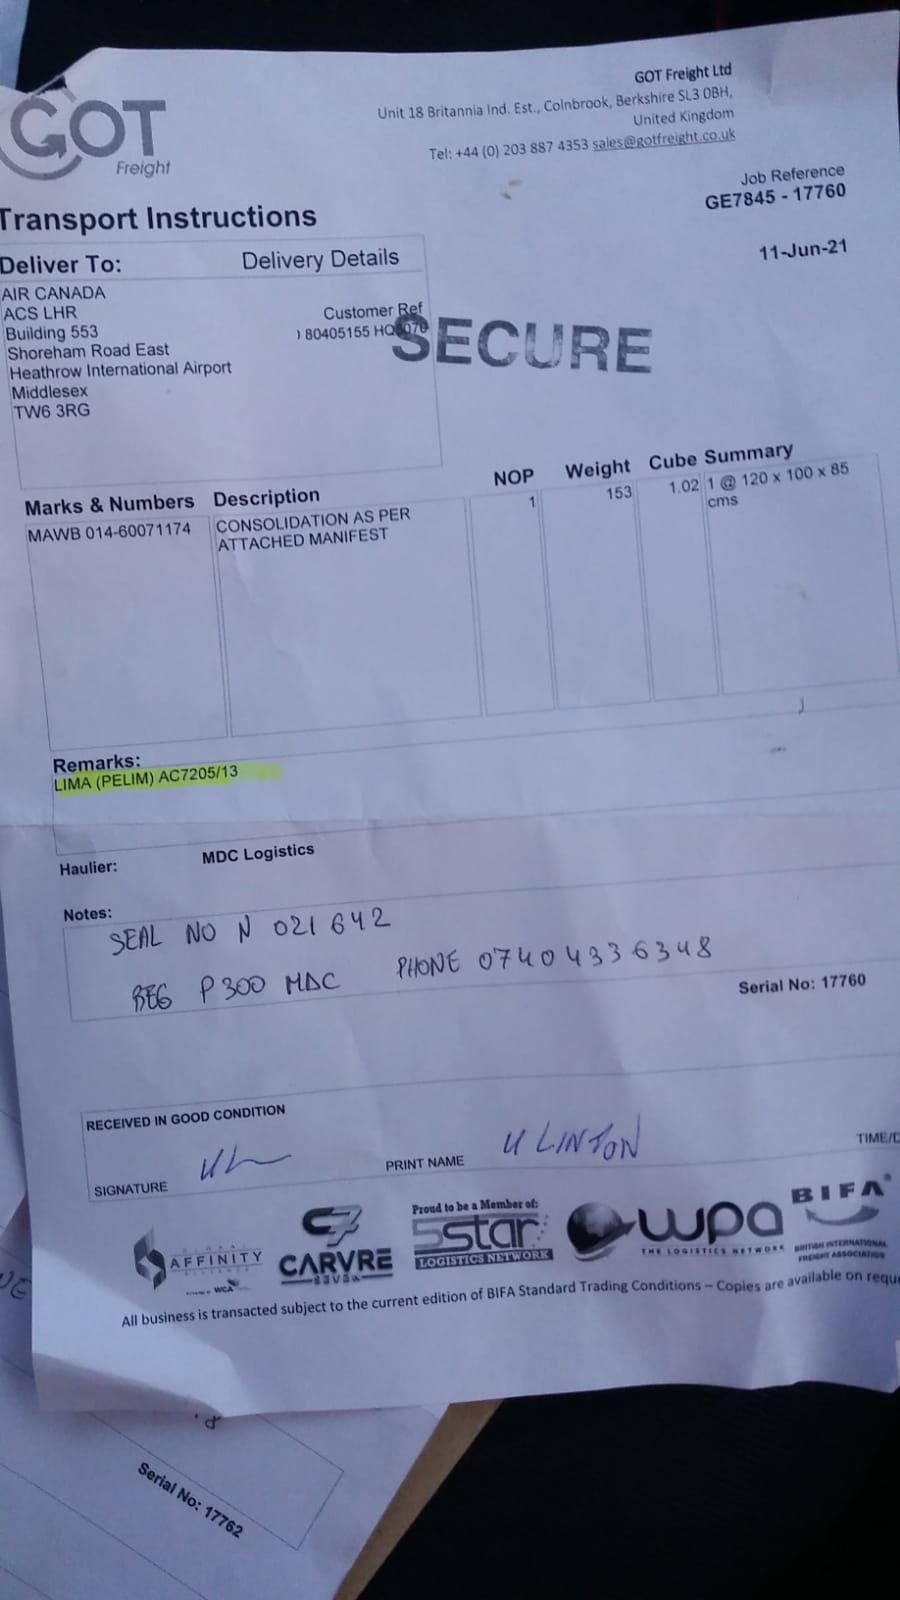 GOT
Freight
GOT Freight Ltd
Unit 18 Britannia Ind. Est., Colnbrook, Berkshire SL3 0BH,
United Kingdom
Tel: +44 (0) 203 887 4353 sales@gotfreight.co.uk
Job Reference
GE7845 - 17760
Transport Instructions
11-Jun-21
Deliver To:
Delivery Details
AIR CANADA
ACS LHR
Building 553
Shoreham Road East
Heathrow International Airport
Middlesex
TW6 3RG
Customer Ref
80405155
SECURE
Marks & Numbers Description NOP Weight Cube Summary
MAWB 014-60071174 CONSOLIDATION AS PER 1 153 1.02 1 @ 120 x 100 x 85
ATTACHED MANIFEST cms
Remarks:
LIMA (PELIM) AC7205/13
Haulier: MDC Logistics
Notes:
SEAL NO N 021642
REG P300 MDC PHONE 07404336348
Serial No: 17760
RECEIVED IN GOOD CONDITION
SIGNATURE
PRINT NAME
LINTON
TIME/D
AFFINITY
WCA
C7
CARVRE
SEVEN
Proud to be a Member of:
5star
LOGISTICS NETWORK
wpa
THE LOGISTICS NETWORK
BIFA
BRITISH INTERNATIONAL
FREIGHT ASSOCIATION
All business is transacted subject to the current edition of BIFA Standard Trading Conditions – Copies are available on requ
Serial No: 17762